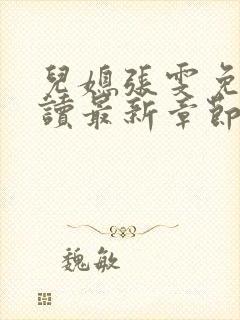 兒媳張雯免
讀最新章節
魏敏